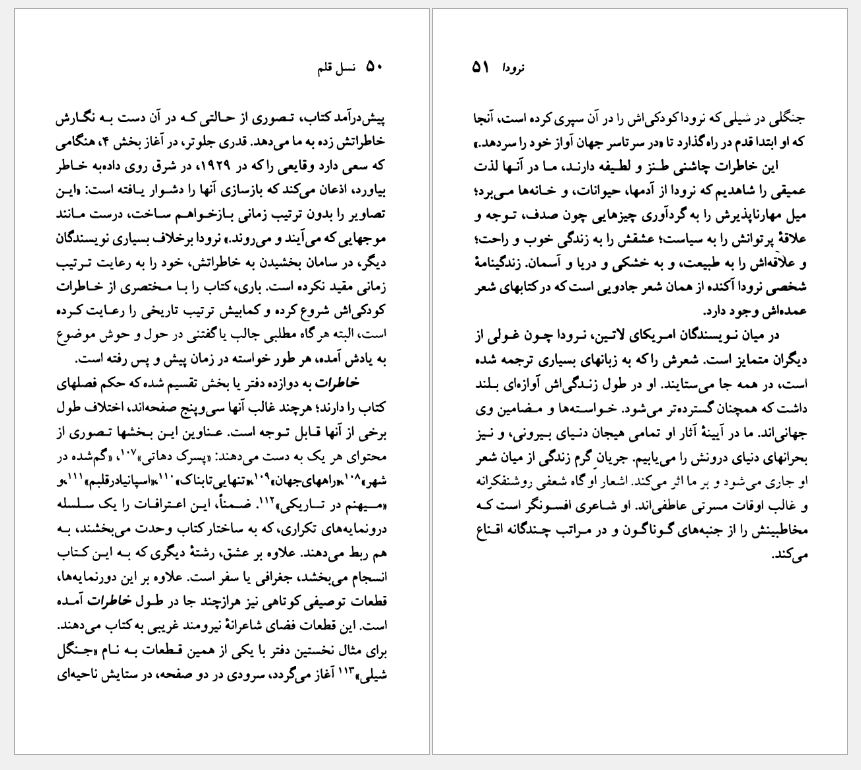 ۵۰ نسل قلم
پیش‌درآمد کتاب، تصوری از حالتی که در آن دست به نگارش
خاطراتش زده به ما می‌دهد. قدری جلوتر، در آغاز بخش ۴، هنگامی
که سعی دارد وقایعی را که در ۱۹۲۹، در شرق روی داده‌به خاطر
بیاورد، اذعان می‌کند که بازسازی آنها را دشوار یافته است: «این
تصاویر را بدون ترتیب زمانی بازخواهم ساخت، درست مانند
موجهایی که می‌آیند و می‌روند.» نرودا برخلاف بسیاری نویسندگان
دیگر، در سامان بخشیدن به خاطراتش، خود را به رعایت ترتیب
زمانی مقید نکرده است. باری، کتاب را با مختصری از خاطرات
کودکی‌اش شروع کرده و کمابیش ترتیب تاریخی را رعایت کرده
است، البته هر گاه مطلبی جالب یا گفتنی در حول و حوش موضوع
به یادش آمده، هر طور خواسته در زمان پیش و پس رفته است.
خاطرات به دوازده دفتر یا بخش تقسیم شده که حکم فصلهای
کتاب را دارند؛ هرچند غالب آنها سی‌وپنج صفحه‌اند، اختلاف طول
برخی از آنها قابل توجه است. عناوین این بخشها تصوری از
محتوای هر یک به دست می‌دهند: «پسرک دهاتی»۱۰۷، «گم‌شده در
شهر»۱۰۸،«راههای‌جهان»۱۰۹،«تنهایی‌تابناک»۱۱۰،«اسپانیادرقلبم»۱۱۱،و
«میهنم در تاریکی»۱۱۲. ضمناً، این اعترافات را یک سلسله
درونمایه‌های تکراری، که به ساختار کتاب وحدت می‌بخشند، به
هم ربط می‌دهند. علاوه بر عشق، رشتهٔ دیگری که به این کتاب
انسجام می‌بخشد، جغرافی یا سفر است. علاوه بر این دورنمایه‌ها،
قطعات توصیفی کوتاهی نیز هرازچند جا در طول خاطرات آمده
است. این قطعات فضای شاعرانهٔ نیرومند غریبی به کتاب می‌دهند.
برای مثال نخستین دفتر با یکی از همین قطعات به نام «جنگل
شیلی»۱۱۳ آغاز می‌گردد، سرودی در دو صفحه، در ستایش ناحیه‌ای
نرودا ۵۱
جنگلی در شیلی که نرودا کودکی‌اش را در آن سپری کرده است، آنجا
که او ابتدا قدم در راه گذارد تا «در سرتاسر جهان آواز خود را سردهد.»
این خاطرات چاشنی طنز و لطیفه دارند، ما در آنها لذت
عمیقی را شاهدیم که نرودا از آدمها، حیوانات، و خانه‌ها می‌برد؛
میل مهارناپذیرش را به گردآوری چیزهایی چون صدف، توجه و
علاقهٔ پرتوانش را به سیاست؛ عشقش را به زندگی خوب و راحت؛
و علاقه‌اش را به طبیعت، و به خشکی و دریا و آسمان. زندگینامهٔ
شخصی نرودا آکنده از همان شعر جادویی است که در کتابهای شعر
عمده‌اش وجود دارد.
در میان نویسندگان امریکای لاتین، نرودا چون غولی از
دیگران متمایز است. شعرش را که به زبانهای بسیاری ترجمه شده
است، در همه جا می‌ستایند. او در طول زندگی‌اش آوازه‌ای بلند
داشت که همچنان گسترده‌تر می‌شود. خواسته‌ها و مضامین وی
جهانی‌اند. ما در آیینهٔ آثار او تمامی هیجان دنیای بیرونی، و نیز
بحرانهای دنیای درونش را می‌یابیم. جریان گرم زندگی از میان شعر
او جاری می‌شود و بر ما اثر می‌کند. اشعار او گاه شعفی روشنفکرانه
و غالب اوقات مسرتی عاطفی‌اند. او شاعری افسونگر است که
مخاطبینش را از جنبه‌های گوناگون و در مراتب چندگانه اقناع
می‌کند.